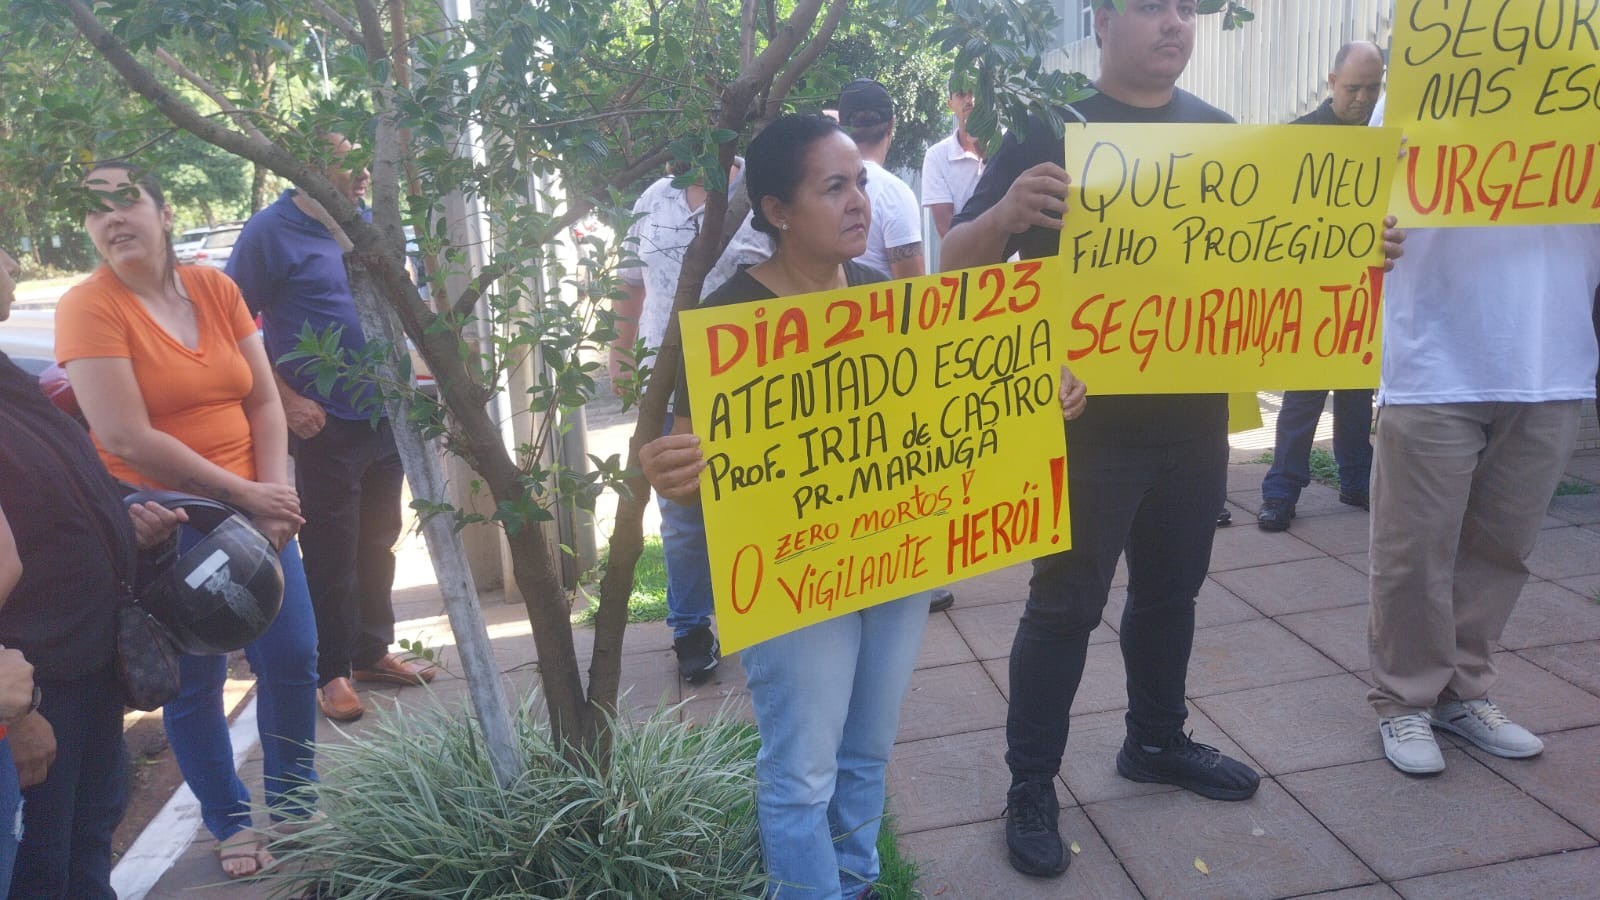 DIA 24/07/23
ATENTADO ESCOLA
PROF. IRIA de CASTRO
PR. MARINGÁ
ZERO MORTOS!
O VIGILANTE HERÓI!
QUERO MEU
FILHO PROTEGIDO
SEGURANÇA JÁ!
SEGUR
NAS ESC
URGENT